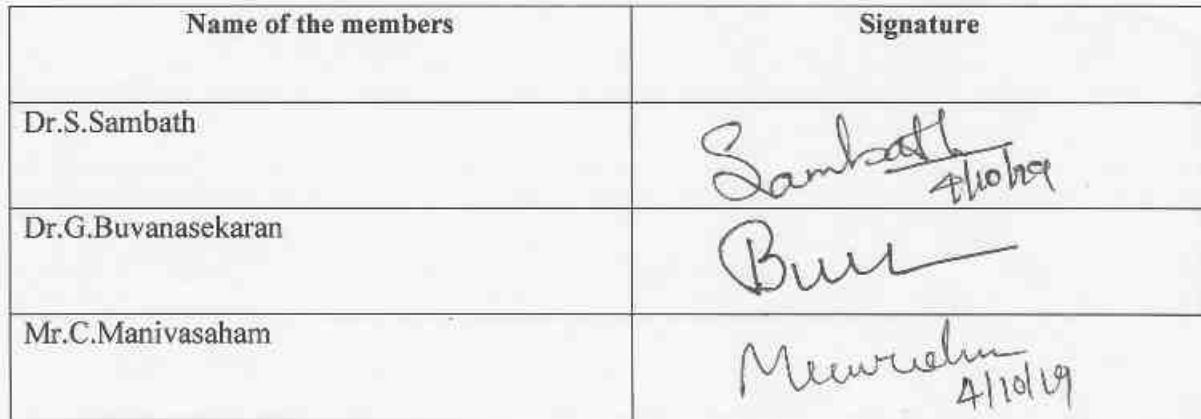 Name of the members Signature
Dr.S.Sambath Sambath
4/10/19
Dr.G.Buvanasekaran
Mr.C.Manivasaham
4/10/19